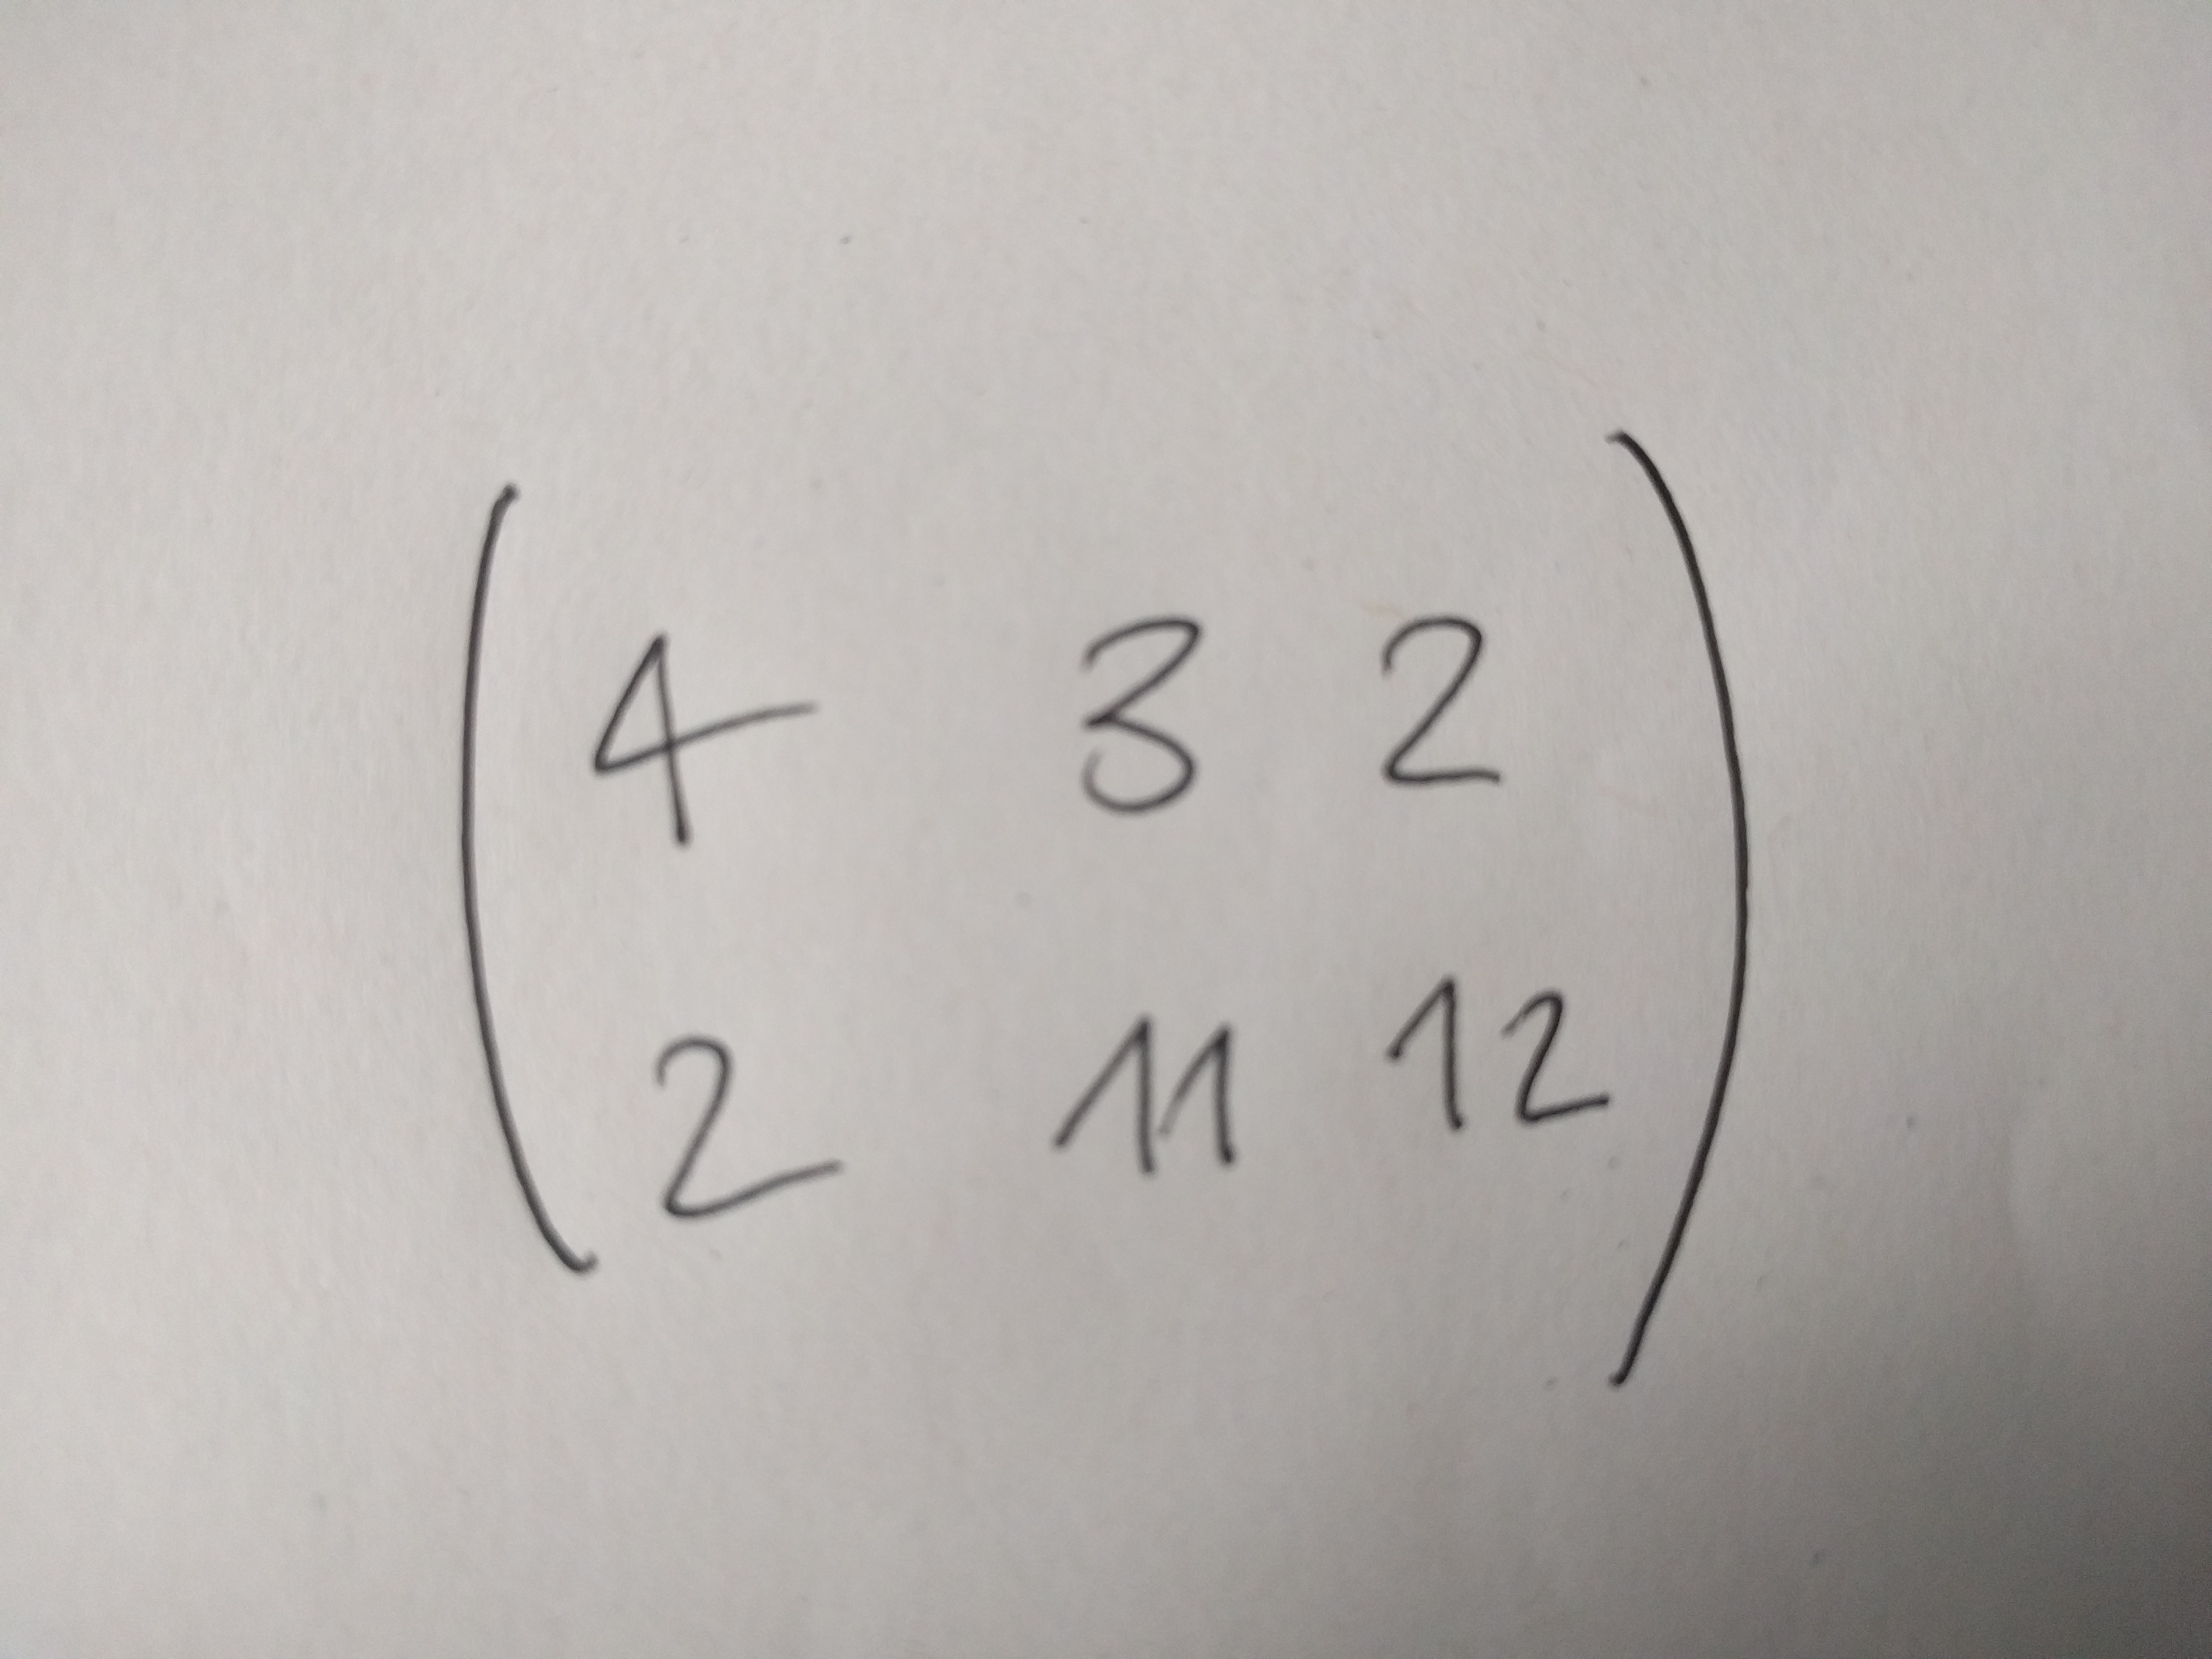 ( 4 3 2
2 11 12 )